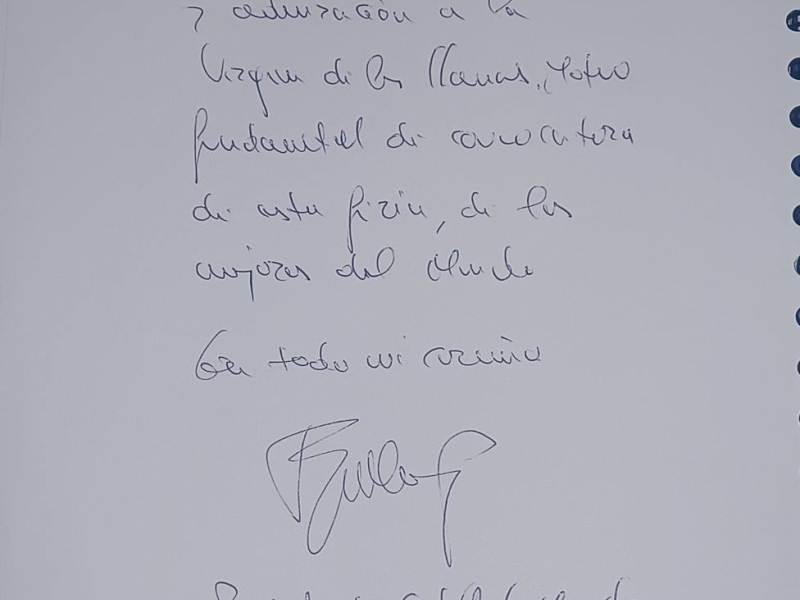 y admiración a la
Virgen de los Llanos, motivo
fundamental de convocatoria
de esta feria, de las
mejores del mundo
Con todo mi cariño